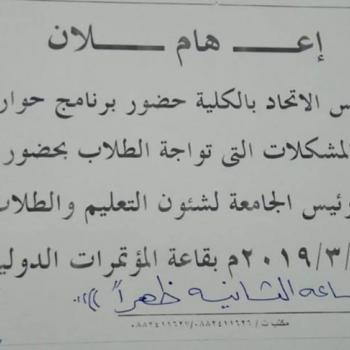 إعـــلان هـــام
س الاتحاد بالكلية حضور برنامج حوار
لمشكلات التى تواجة الطلاب بحضور
رئيس الجامعة لشئون التعليم والطلاب
/٢٠١٩/٣م بقاعة المؤتمرات الدولي
اعه الثانيه ظهراً
مكتب ت /